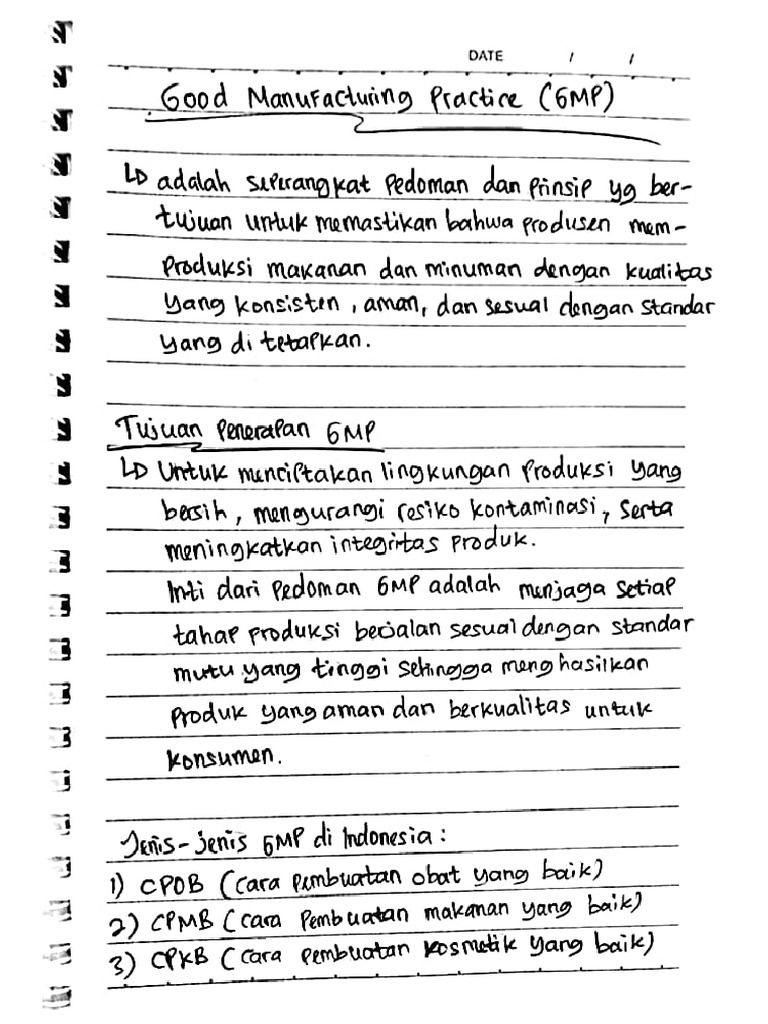 DATE / /
Good Manufacturing Practice (GMP)
↳ adalah seperangkat pedoman dan prinsip yg ber-
tujuan untuk memastikan bahwa produsen mem-
produksi makanan dan minuman dengan kualitas
yang konsisten, aman, dan sesuai dengan standar
yang di tetapkan.
Tujuan penerapan GMP
↳ Untuk menciptakan lingkungan produksi yang
bersih, mengurangi resiko kontaminasi, serta
meningkatkan integritas produk.
Inti dari pedoman GMP adalah menjaga setiap
tahap produksi berjalan sesuai dengan standar
mutu yang tinggi sehingga menghasilkan
produk yang aman dan berkualitas untuk
konsumen.
Jenis-jenis GMP di Indonesia:
1) CPOB (Cara pembuatan obat yang baik)
2) CPMB (Cara pembuatan makanan yang baik)
3) CPKB (Cara pembuatan kosmetik yang baik)